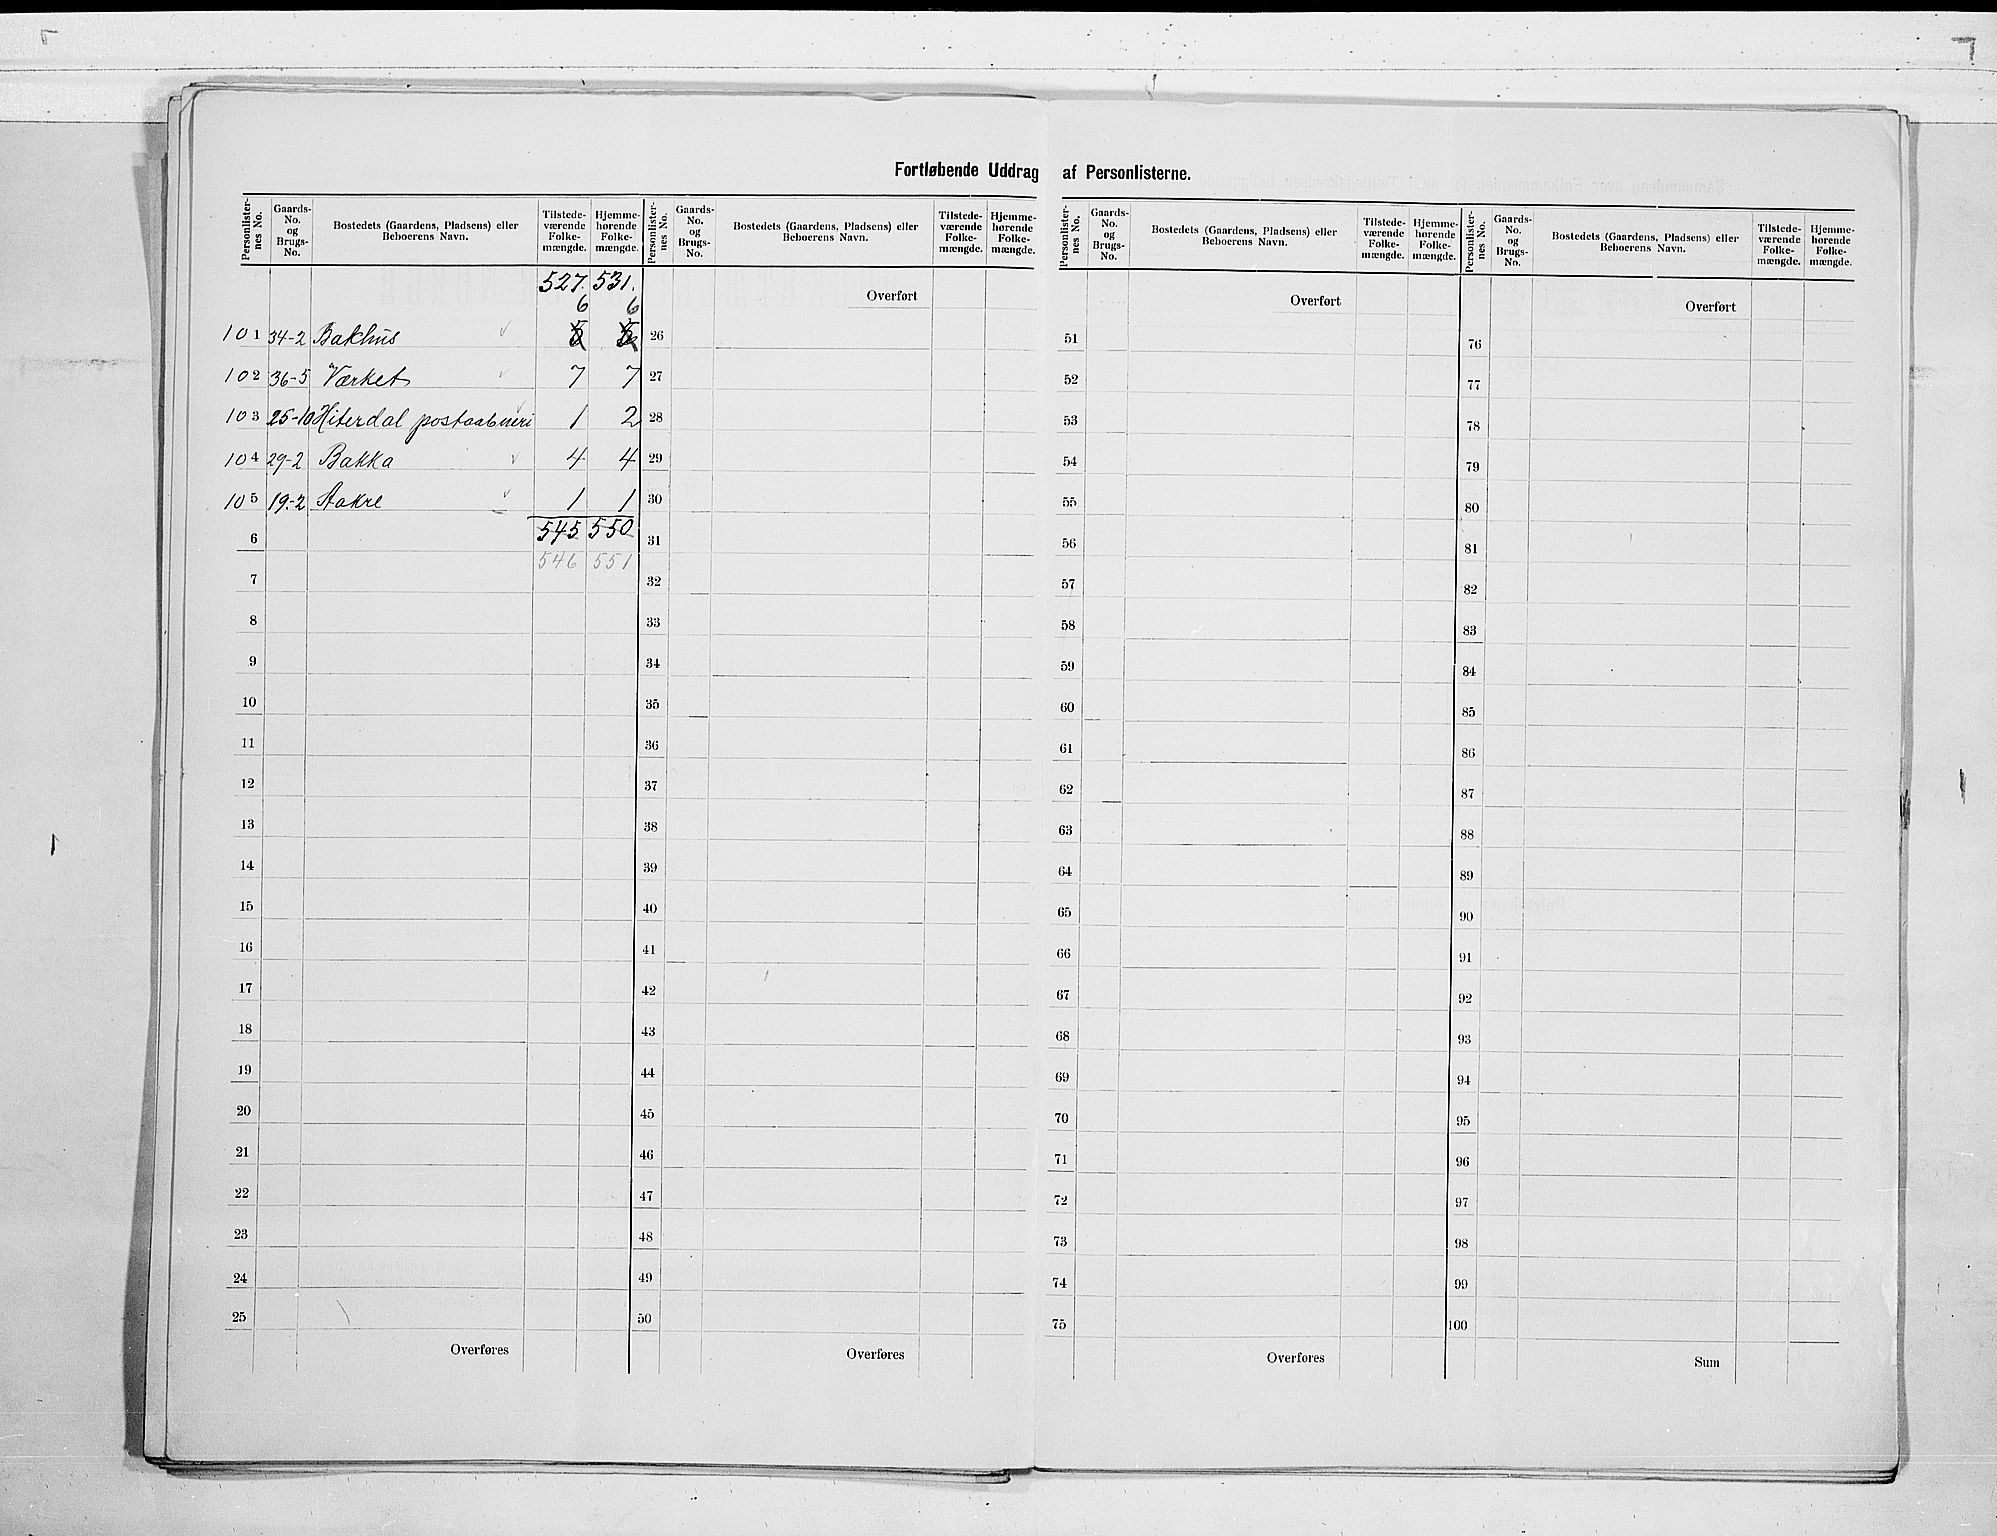 Fortløbende Uddrag af Personlisterne.
Personlister-nes No. Gaards-No. og Brugs-No. Bostedets (Gaardens, Pladsens) eller Beboerens Navn. Tilstede-værende Folke-mængde. Hjemme-hørende Folke-mængde.
527. 531.
6 6
101 34-2 Bakhus
102 36-5 Værket 7 7
103 25-10 Hiterdal postaabneri 1 2
104 29-2 Bakka 4 4
105 19-2 Aakre 1 1
545 550
6
546 551
7
8
9
10
11
12
13
14
15
16
17
18
19
20
21
22
23
24
25
Overføres
Personlister-nes No. Gaards-No. og Brugs-No. Bostedets (Gaardens, Pladsens) eller Beboerens Navn. Tilstede-værende Folke-mængde. Hjemme-hørende Folke-mængde.
Overført
26
27
28
29
30
31
32
33
34
35
36
37
38
39
40
41
42
43
44
45
46
47
48
49
50
Overføres
Personlister-nes No. Gaards-No. og Brugs-No. Bostedets (Gaardens, Pladsens) eller Beboerens Navn. Tilstede-værende Folke-mængde. Hjemme-hørende Folke-mængde.
Overført
51
52
53
54
55
56
57
58
59
60
61
62
63
64
65
66
67
68
69
70
71
72
73
74
75
Overføres
Personlister-nes No. Gaards-No. og Brugs-No. Bostedets (Gaardens, Pladsens) eller Beboerens Navn. Tilstede-værende Folke-mængde. Hjemme-hørende Folke-mængde.
Overført
76
77
78
79
80
81
82
83
84
85
86
87
88
89
90
91
92
93
94
95
96
97
98
99
100
Sum